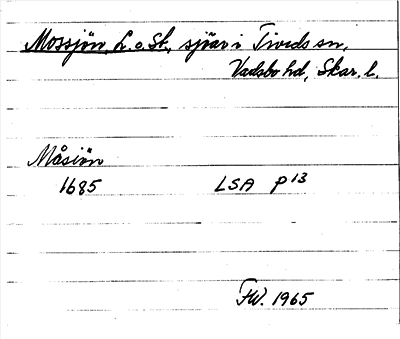 Mossjön, L. o. St., sjöar i Tiveds sn,
Vadsbo hd, Skar. l.
Måsiön
1685 LSA P13
FW. 1965